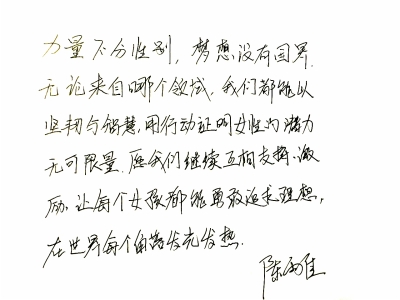 力量不分性别，梦想没有国界.
无论来自哪个领域，我们都能以
坚韧与智慧，用行动证明女性的潜力
无可限量.愿我们继续互相支持、激
励，让每个女孩都能勇敢追求理想，
在世界每个角落发光发热.
陈雨佳